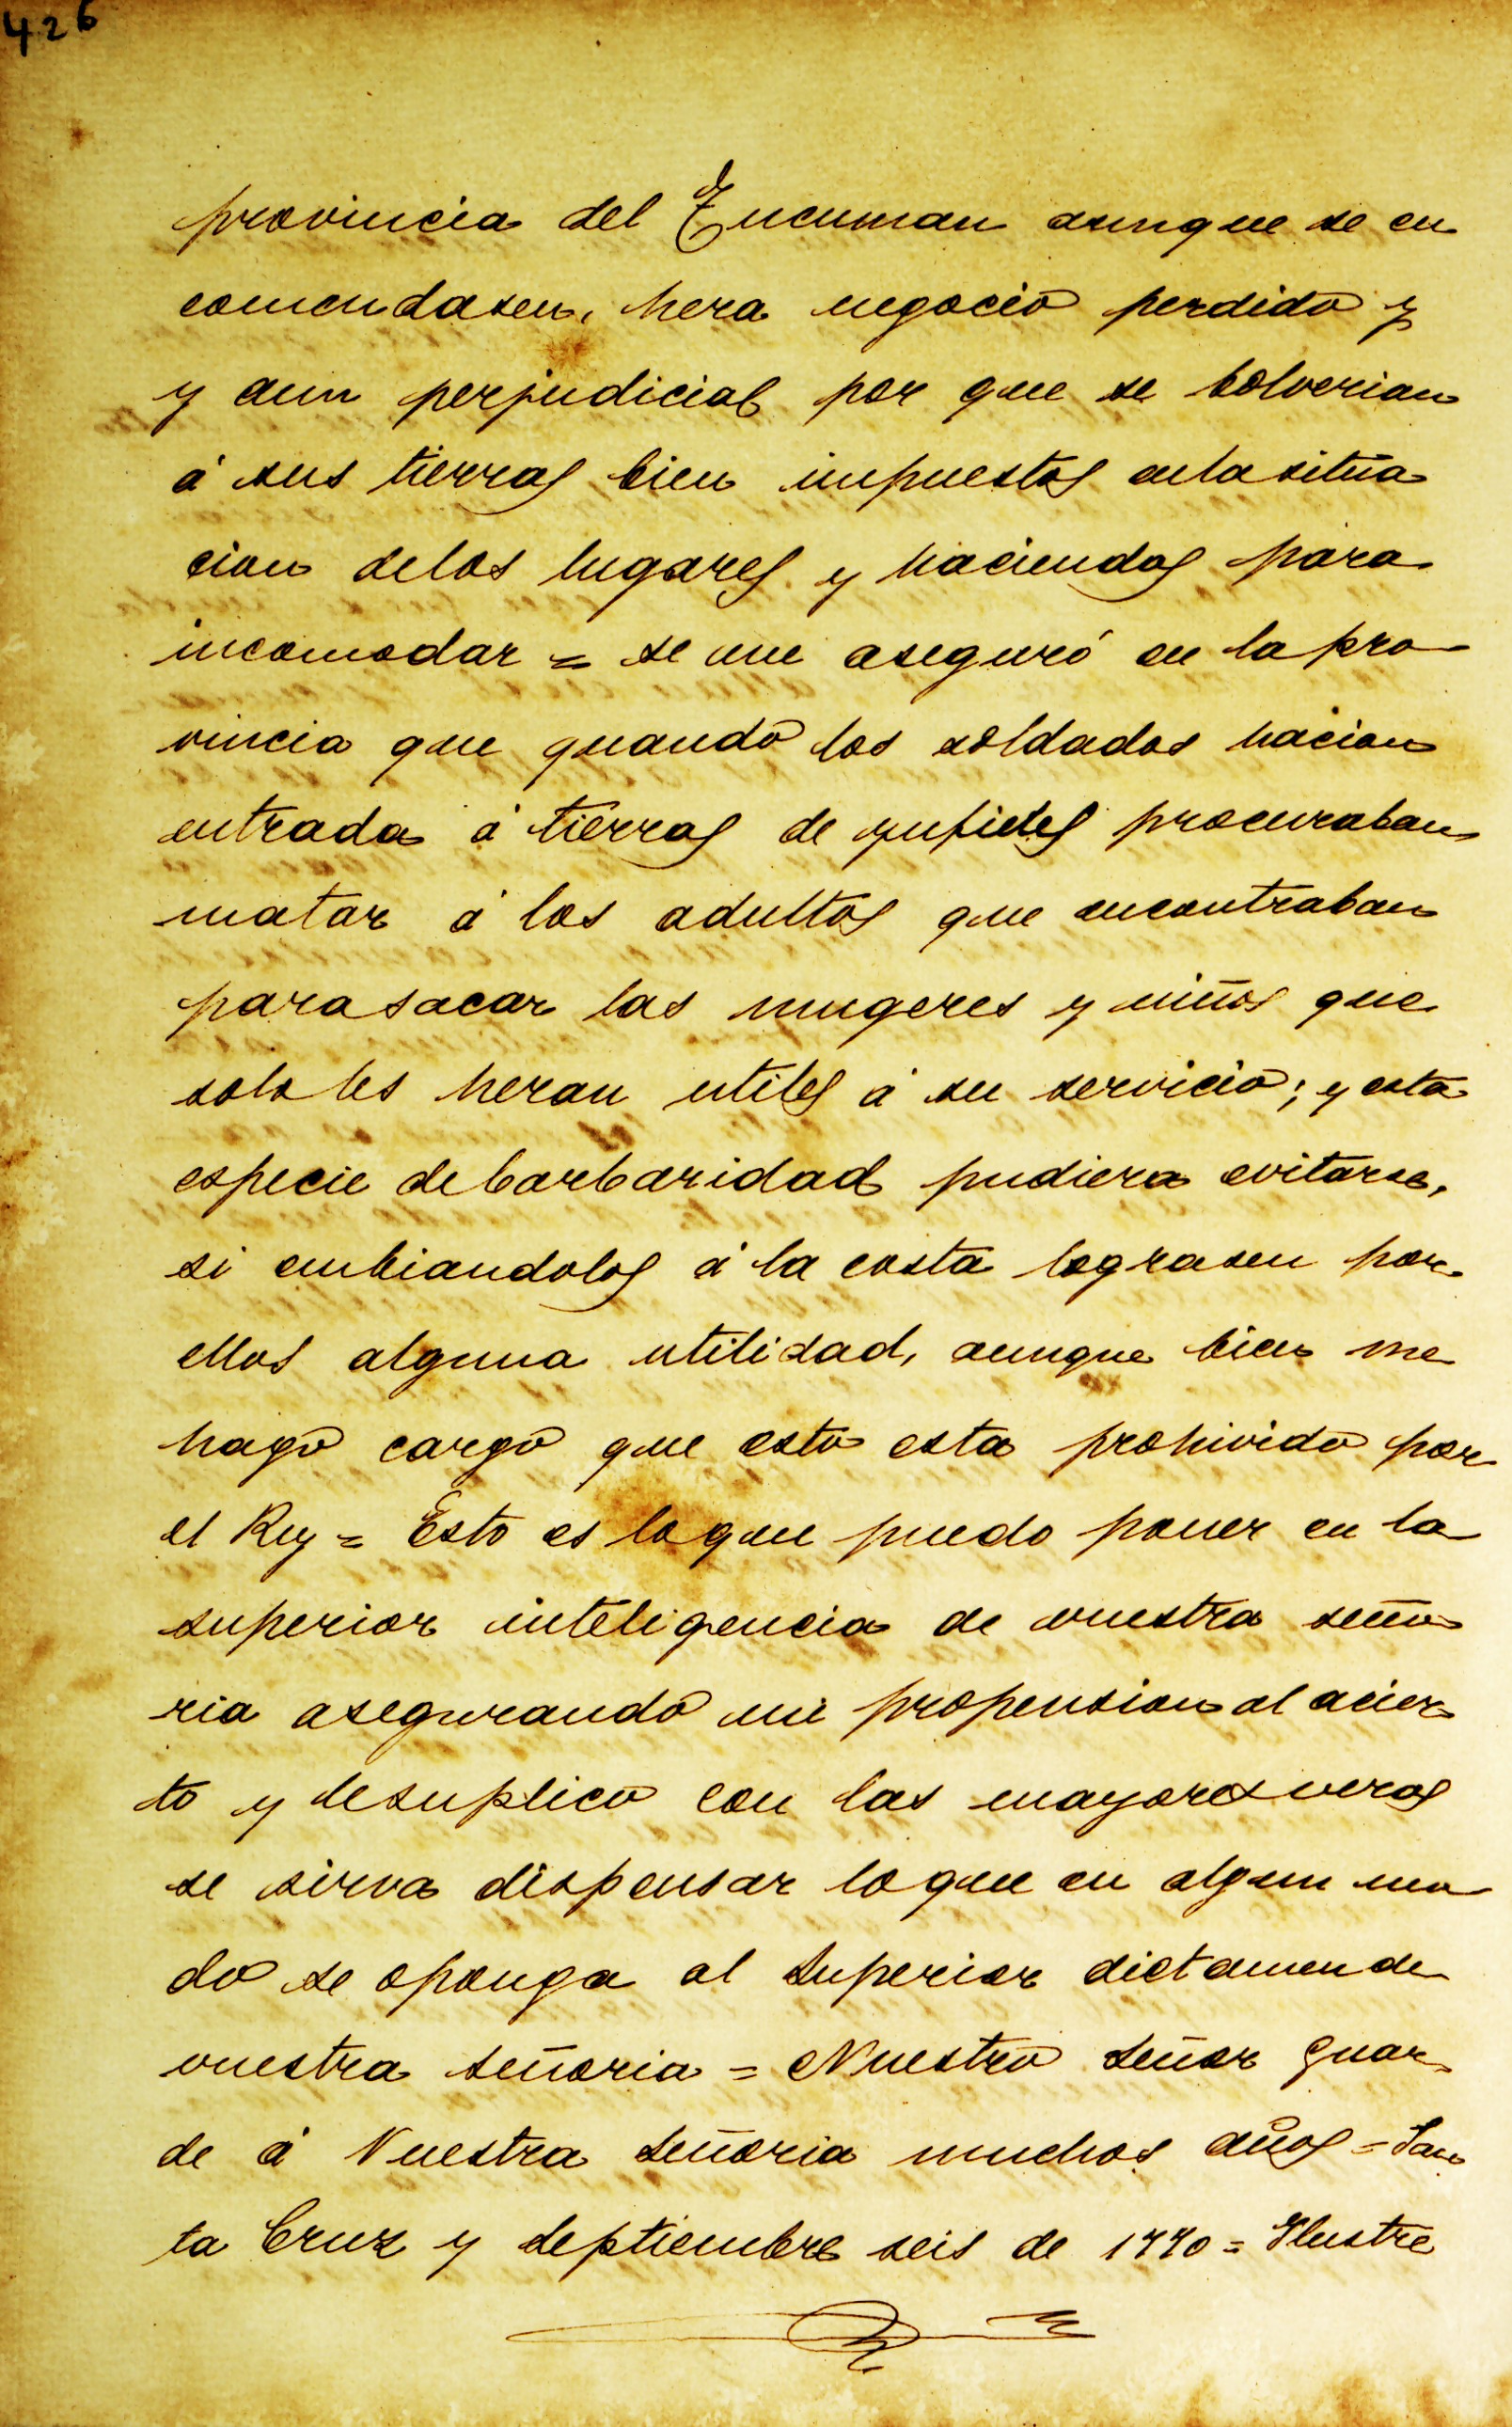 426
provincia del Tucuman aunque se en
comendasen, hera negocio perdido y
y aun perjudicial por que se bolverian
á sus tierras bien impuestos enla situa
cion delos lugares y haciendas para
incomodar = se me aseguró en la pro
vincia que quando los soldados hacian
entrada á tierras de ynfieles procuraban
matar á los adultos que encontraban
para sacar las mugeres y niños que
solo les heran utiles á su servicio; y esta
especie de barbaridad pudiera evitarse,
si embiandolos á la costa lograsen por
ellos alguna utilidad, aunque bien me
hago cargo que esto esta prohivido por
el Rey = Esto es loque puedo poner en la
superior inteligencia de vuestra seño
ria asegurando mi propension al acier
to y lesuplico con las mayores veras
se sirva dispensar loque en algun mo
do se oponga al Superior dictamen de
vuestra señoria = Nuestro Señor guar
de á Vuestra Señoria muchos años = San
ta Cruz y Septiembre seis de 1770 = Ylustre